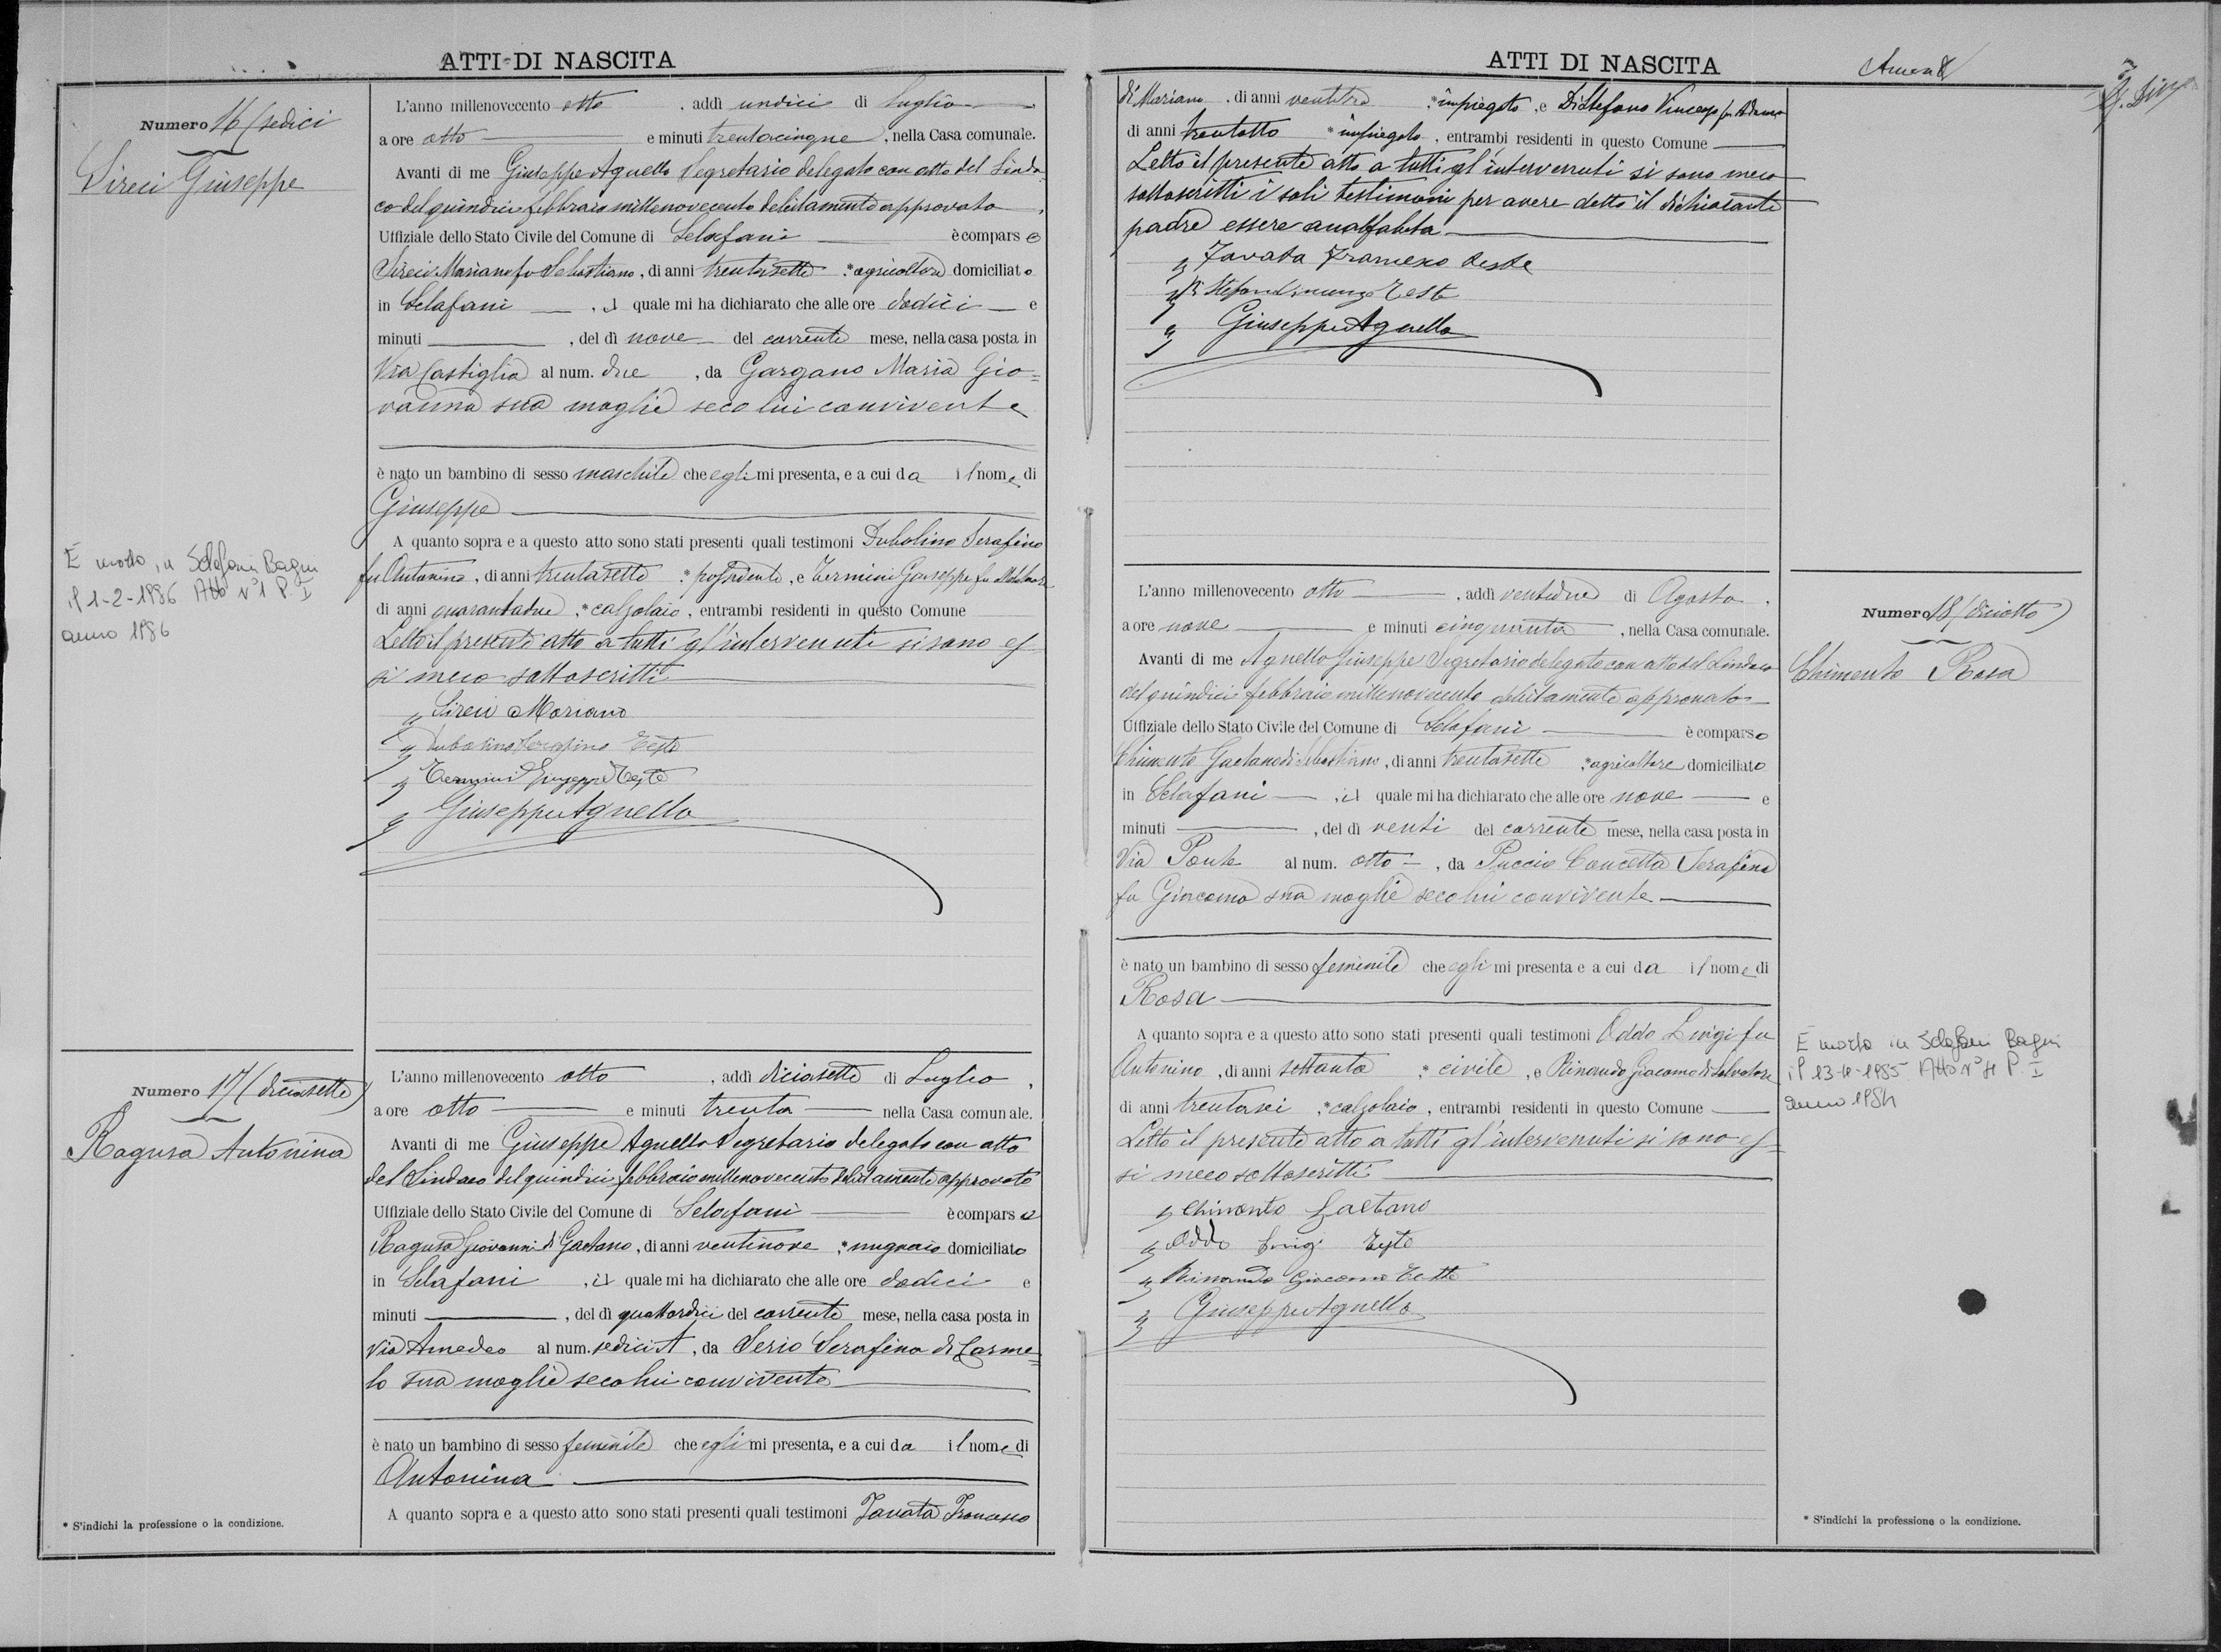 ATTI DI NASCITA
Numero 16 (sedici
Sireci Giuseppe
L'anno millenovecento otto, addì undici di Luglio
a ore otto e minuti trentacinque, nella Casa comunale.
Avanti di me Giuseppe Agnello Segretario delegato con atto del Sinda-
co del quindici febbraio millenovecento debitamente approvato,
Uffiziale dello Stato Civile del Comune di Sclafani è comparso
Sireci Mariano fu Sebastiano, di anni trentasette, *agricoltore domiciliato
in Sclafani, il quale mi ha dichiarato che alle ore dodici e
minuti, del dì nove del corrente mese, nella casa posta in
Via Castiglia al num. due, da Gargano Maria Gio=
vanna sua moglie seco lui convivente
è nato un bambino di sesso maschile che egli mi presenta, e a cui da il nome di
Giuseppe
A quanto sopra e a questo atto sono stati presenti quali testimoni Dubolino Serafino
fu Antonino, di anni trentasette, *possidente, e Termini Giuseppe fu
di anni quarantadue, *calzolaio, entrambi residenti in questo Comune
Letto il presente atto a tutti gl'intervenuti si sono es
si meco sottoscritti
Sireci Mariano
Dubolino Serafino Teste
Termini Giuseppe Teste
Giuseppe Agnello
È morto in Sclafani Bagni
il 1-2-1986 Atto N°1 P. I
anno 1986
Numero 17 (diciasette)
Ragusa Antonina
L'anno millenovecento otto, addì diciasette di Luglio,
a ore otto e minuti trenta nella Casa comunale.
Avanti di me Giuseppe Agnello Segretario delegato con atto
del Sindaco del quindici febbraio millenovecento debitamente approvato
Uffiziale dello Stato Civile del Comune di Sclafani è comparso
Ragusa Giovanni di Gaetano, di anni ventinove, *mugnaio domiciliato
in Sclafani, il quale mi ha dichiarato che alle ore dodici e
minuti, del dì quattordici del corrente mese, nella casa posta in
Via Amedeo al num. sedici A, da Serio Serafina di Carme=
lo sua moglie seco lui convivente
è nato un bambino di sesso feminile che egli mi presenta, e a cui da il nome di
Antonina
A quanto sopra e a questo atto sono stati presenti quali testimoni Tavata Francesco
* S'indichi la professione o la condizione.
ATTI DI NASCITA
di Mariano, di anni ventitre, *impiegato, e Di Stefano Vincenzo fu
di anni trentotto *impiegato, entrambi residenti in questo Comune
Letto il presente atto a tutti gl'intervenuti si sono meco
sottoscritti i soli testimoni per avere detto il dichiarante
padre essere analfabeta
Tavata Francesco teste
Di Stefano Vincenzo Teste
Giuseppe Agnello
L'anno millenovecento otto, addì ventidue di Agosto,
a ore nove e minuti cinquanta, nella Casa comunale.
Avanti di me Agnello Giuseppe Segretario delegato con atto del Sindaco
del quindici febbraio millenovecento debitamente approvato
Uffiziale dello Stato Civile del Comune di Sclafani è comparso
Chimento Gaetano di Sebastiano, di anni trentasette, *agricoltore domiciliato
in Sclafani, il quale mi ha dichiarato che alle ore nove e
minuti, del dì venti del corrente mese, nella casa posta in
Via Ponte al num. otto, da Puccio Concetta Serafina
fu Giacomo sua moglie seco lui convivente
è nato un bambino di sesso feminile che egli mi presenta e a cui da il nome di
Rosa
A quanto sopra e a questo atto sono stati presenti quali testimoni Oddo Luigi fu
Antonino, di anni settanta, *civile, e Rinaudo Giacomo di Salvatore
di anni trentasei, *calzolaio, entrambi residenti in questo Comune
Letto il presente atto a tutti gl'intervenuti si sono es=
si meco sottoscritti
Chimento Gaetano
Oddo Luigi Teste
Rinaudo Giacomo Teste
Giuseppe Agnello
Numero 18 (diciotto)
Chimento Rosa
È morta in Sclafani Bagni
* S'indichi la professione o la condizione.